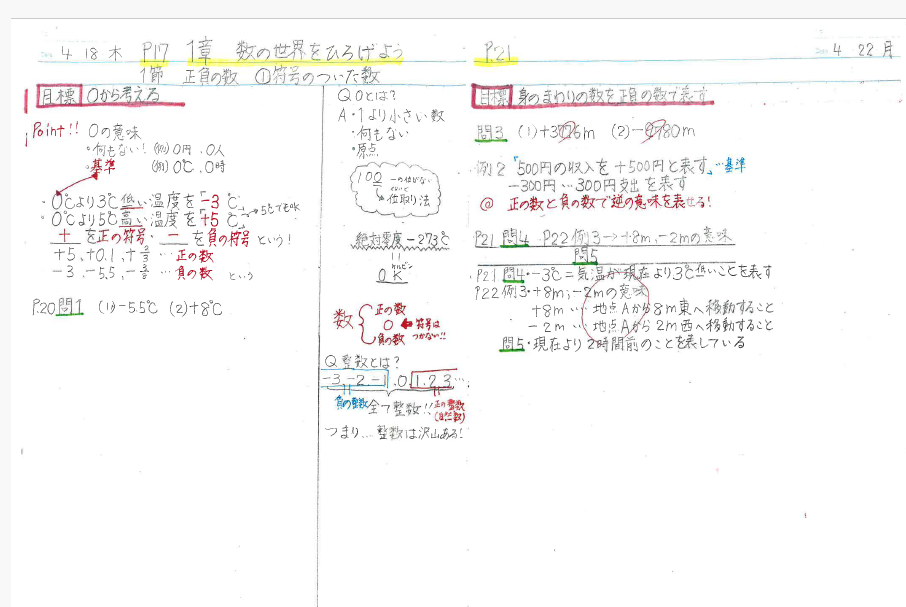 4 18 木 P17 1章 数の世界をひろげよう
1節 正負の数 ①符号のついた数
目標 0から考える
Point!! 0の意味
・何もない! (例)0円、0人
・基準 (例)0℃、0時
・0℃より3℃低い温度を「-3℃」
・0℃より5℃高い温度を「+5℃」→5℃でもOK
+を正の符号・-を負の符号という!
+5、+0.1、+ … 正の数
-3、-5.5、- … 負の数 という
P.20問1 (1)-5.5℃ (2)+8℃
Q 0とは?
A・1より小さい数
・何もない
・原点
100 一の位がない
位取り法
絶対零度-273℃
ケルビン
0K
数 正の数
0 ←符号はつかない!!
負の数
Q 整数とは?
-3、-2、-1、0、1、2、3…
負の整数 全て整数!! 正の整数
(自然数)
つまり…整数は沢山ある!
P.21 4 22 月
目標 身のまわりの数を正負の数で表す
問3 (1)+3776m (2)-80m
例2「500円の収入を+500円と表す」…基準
-300円…300円支出を表す
◎ 正の数と負の数で逆の意味を表せる!
P21 問4、P22例3→+8m、-2mの意味
問5
P21 問4・-3℃=気温が現在より3℃低いことを表す
P22例3・+8m、-2mの意味
+8m … 地点Aから8m東へ移動すること
-2m … 地点Aから2m西へ移動すること
問5・現在より2時間前のことを表している